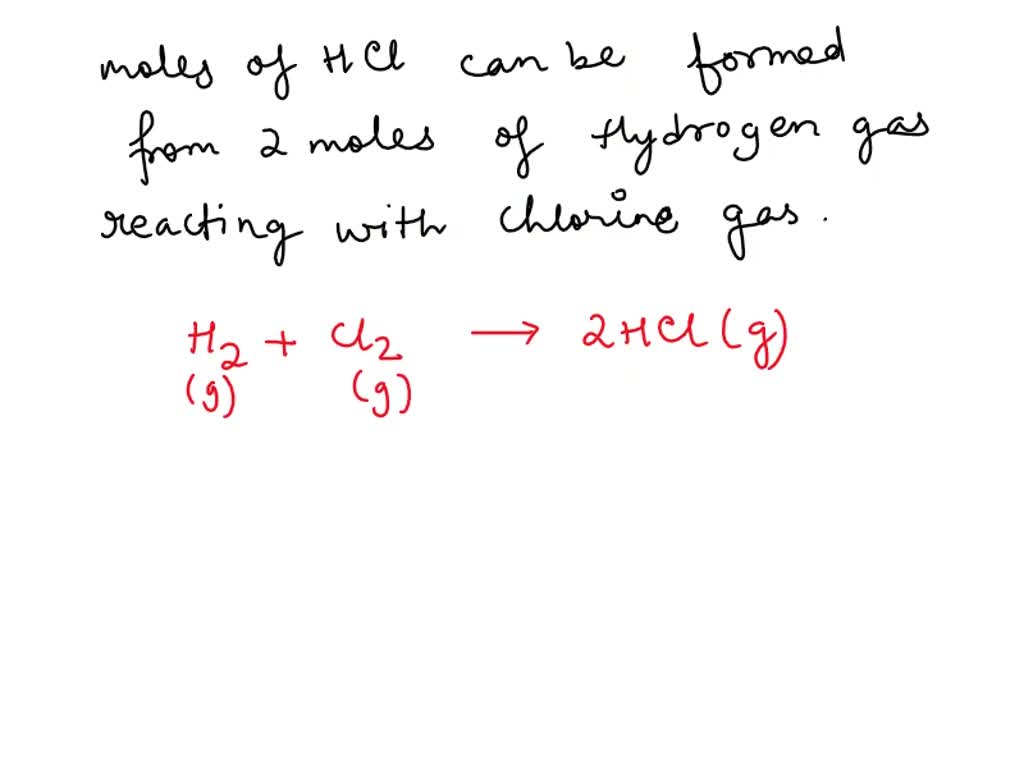 moles of HCl can be formed
from 2 moles of Hydrogen gas
reacting with chlorine gas.
H2 + Cl2 → 2HCl(g)
(g) (g)